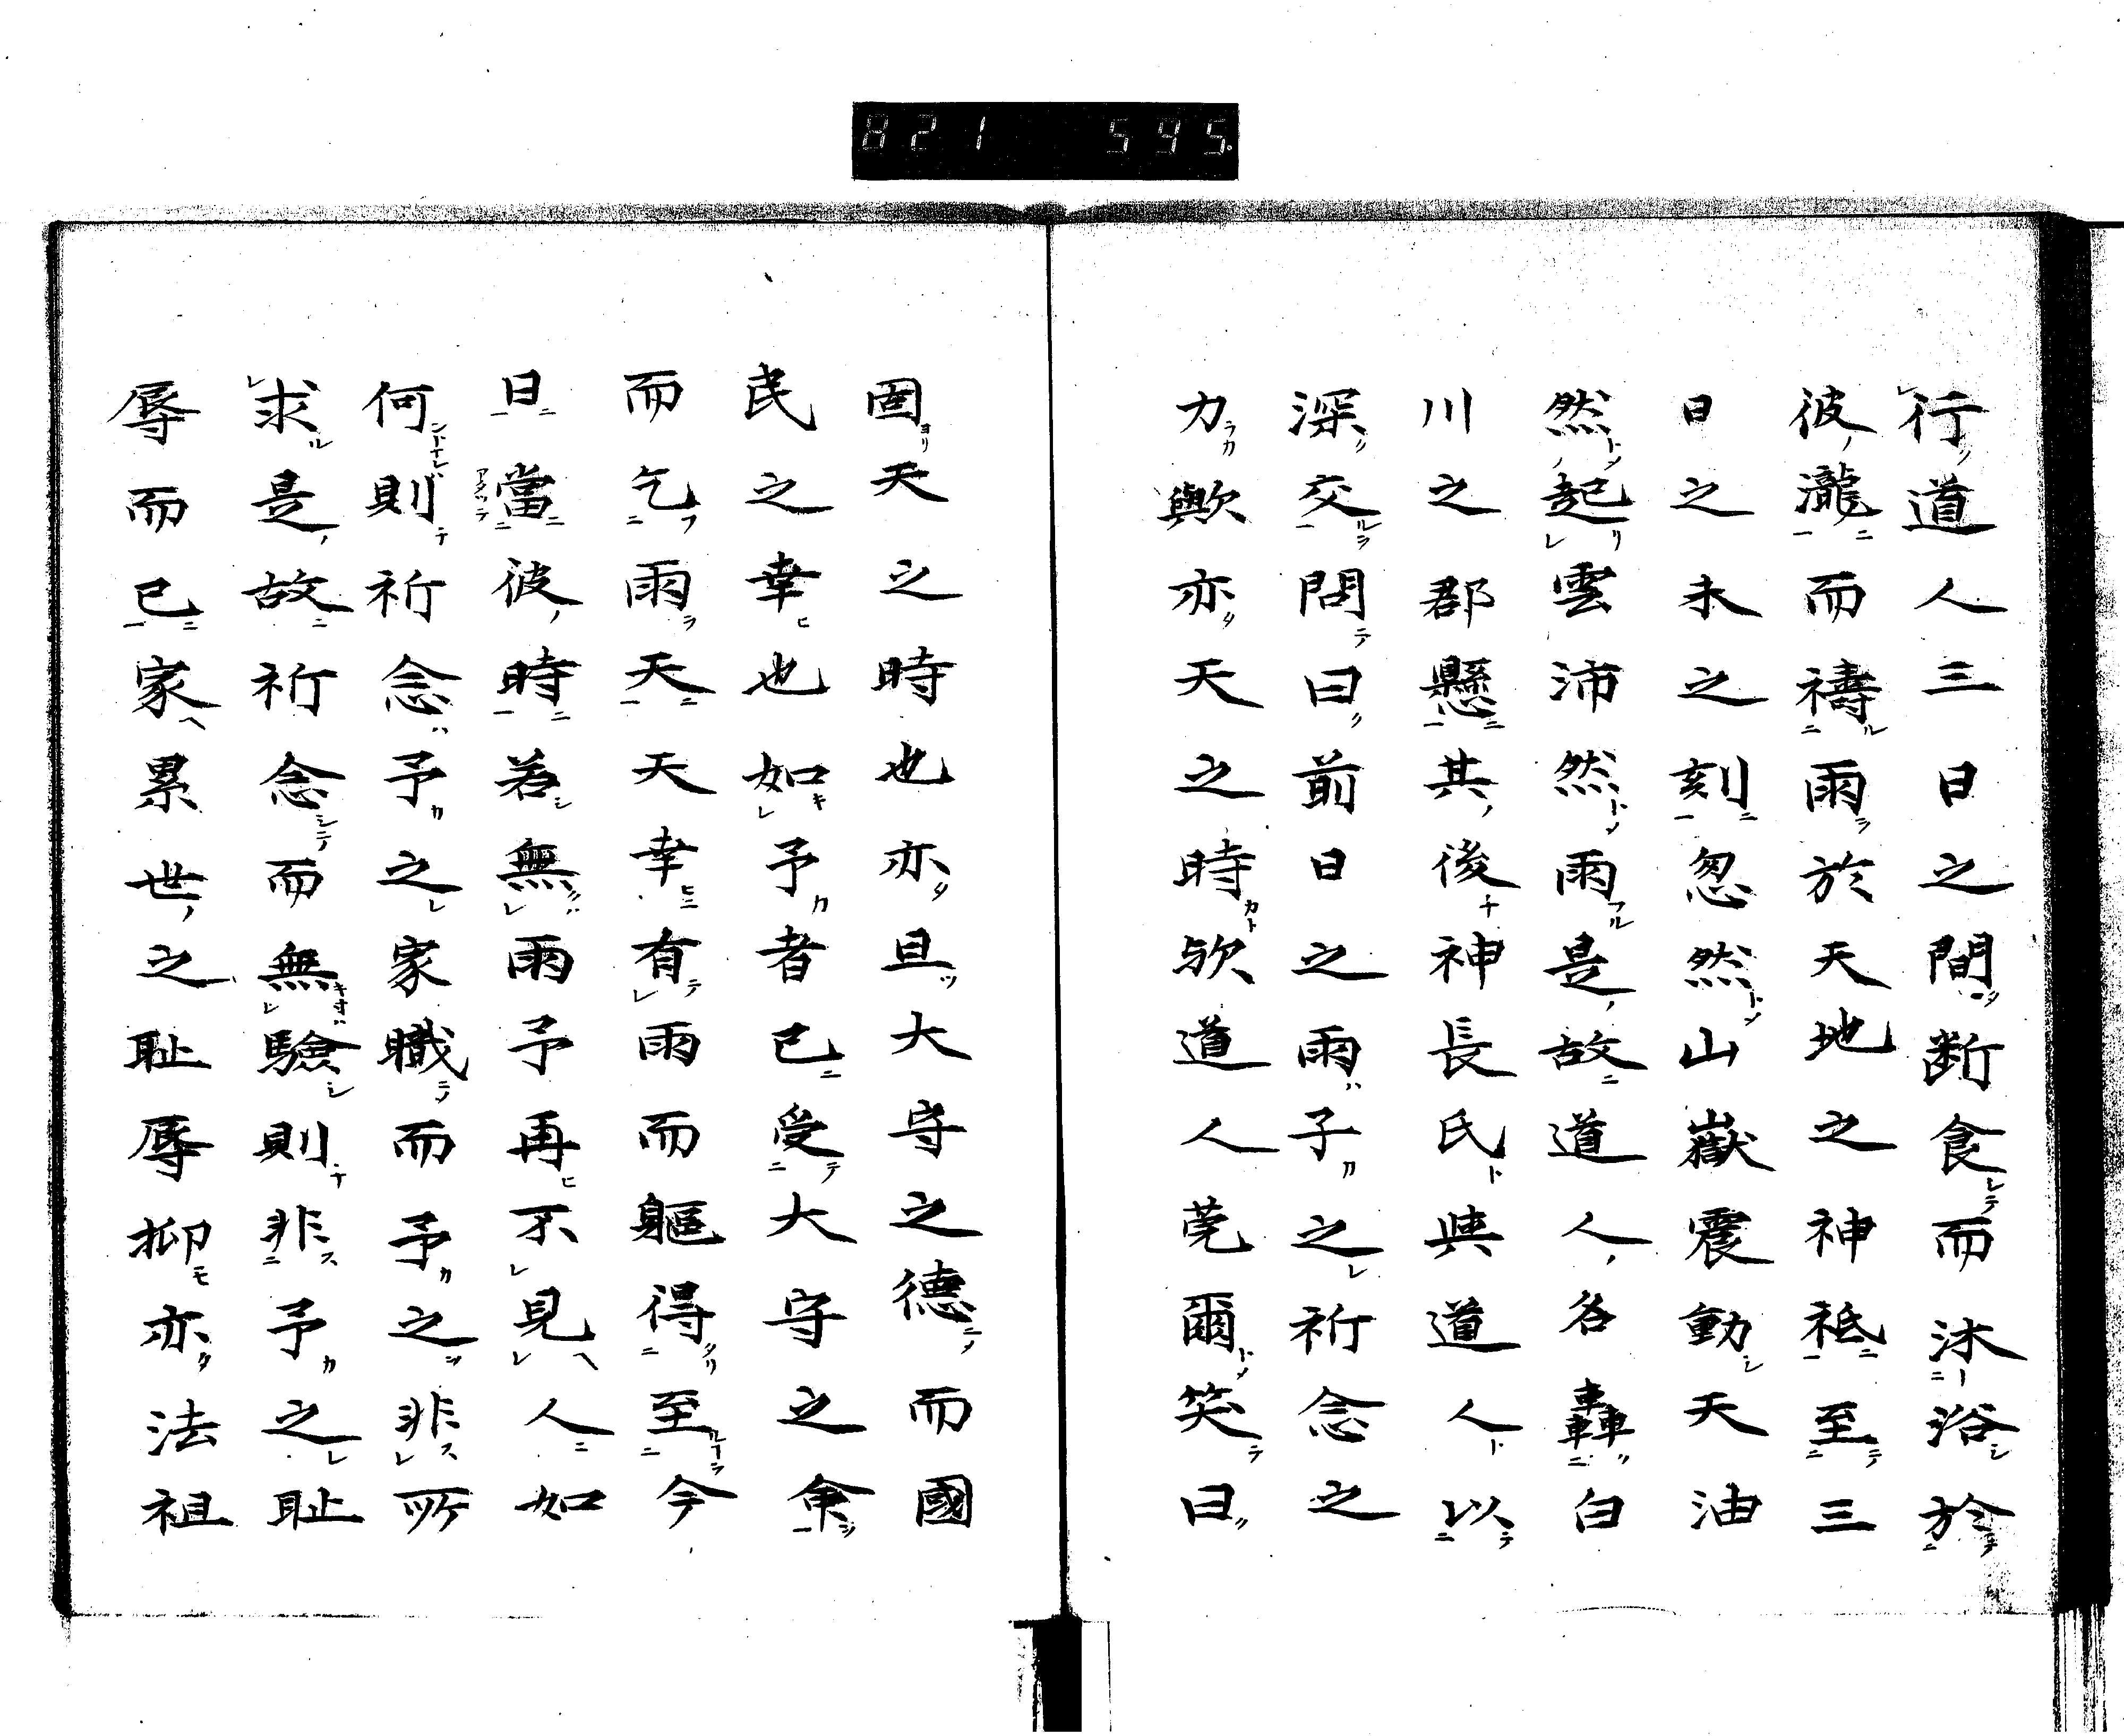 821 595.
行道人三日之間断食而沐浴於
彼瀧而禱雨於天地之神祗至三
日之未之刻忽然山嶽震動天油
然起雲沛然雨是故道人名轟白
川之郡懸其後神長氏與道人以
深交問曰前日之雨子之祈念之
力歟亦天之時欤道人莞爾笑曰
固天之時也亦且大守之德而國
民之幸也如予者已受大守之命
而乞雨天天幸有雨而軀得至今
日當彼時若無雨予再不見人如
何則祈念予之家職而予之非所
求是故祈念而無驗則非予之耻
辱而已家累世之耻辱抑亦法祖